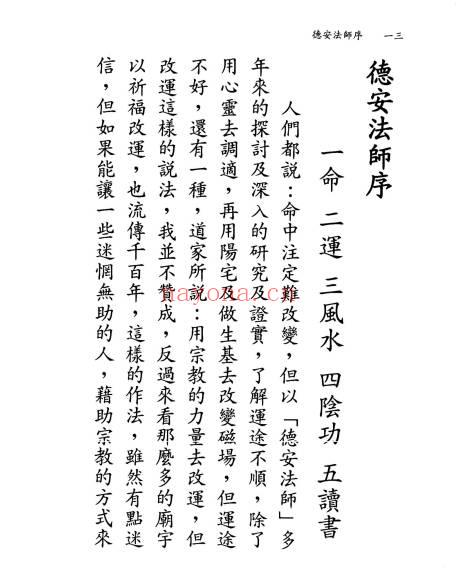 德安法師序　一三
德安法師序
一命　二運　三風水　四陰功　五讀書
人們都說：命中注定難改變，但以「德安法師」多
年來的探討及深入的研究及證實，了解運途不順，除了
用心靈去調適，再用陽宅及做生基去改變磁場，但運途
不好，還有一種，道家所說：用宗教的力量去改運，但
改運這樣的說法，我並不贊成，反過來看那麼多的廟宇
以祈福改運，也流傳千百年，這樣的作法，雖然有點迷
信，但如果能讓一些迷惘無助的人，藉助宗教的方式來
nayona.cn